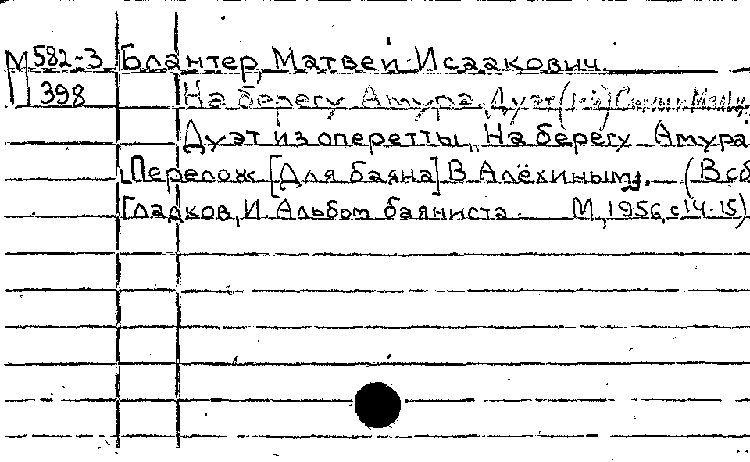 М 582-3 Блантер, Матвей Исаакович.
398 На берегу Амура. Дуэт (1-й)
Дуэт из оперетты „На берегу Амура
Перелож. [Для баяна] В. Алёхиным. (В сб
Гладков, И. Альбом баяниста. М., 1956, с. 14-15)